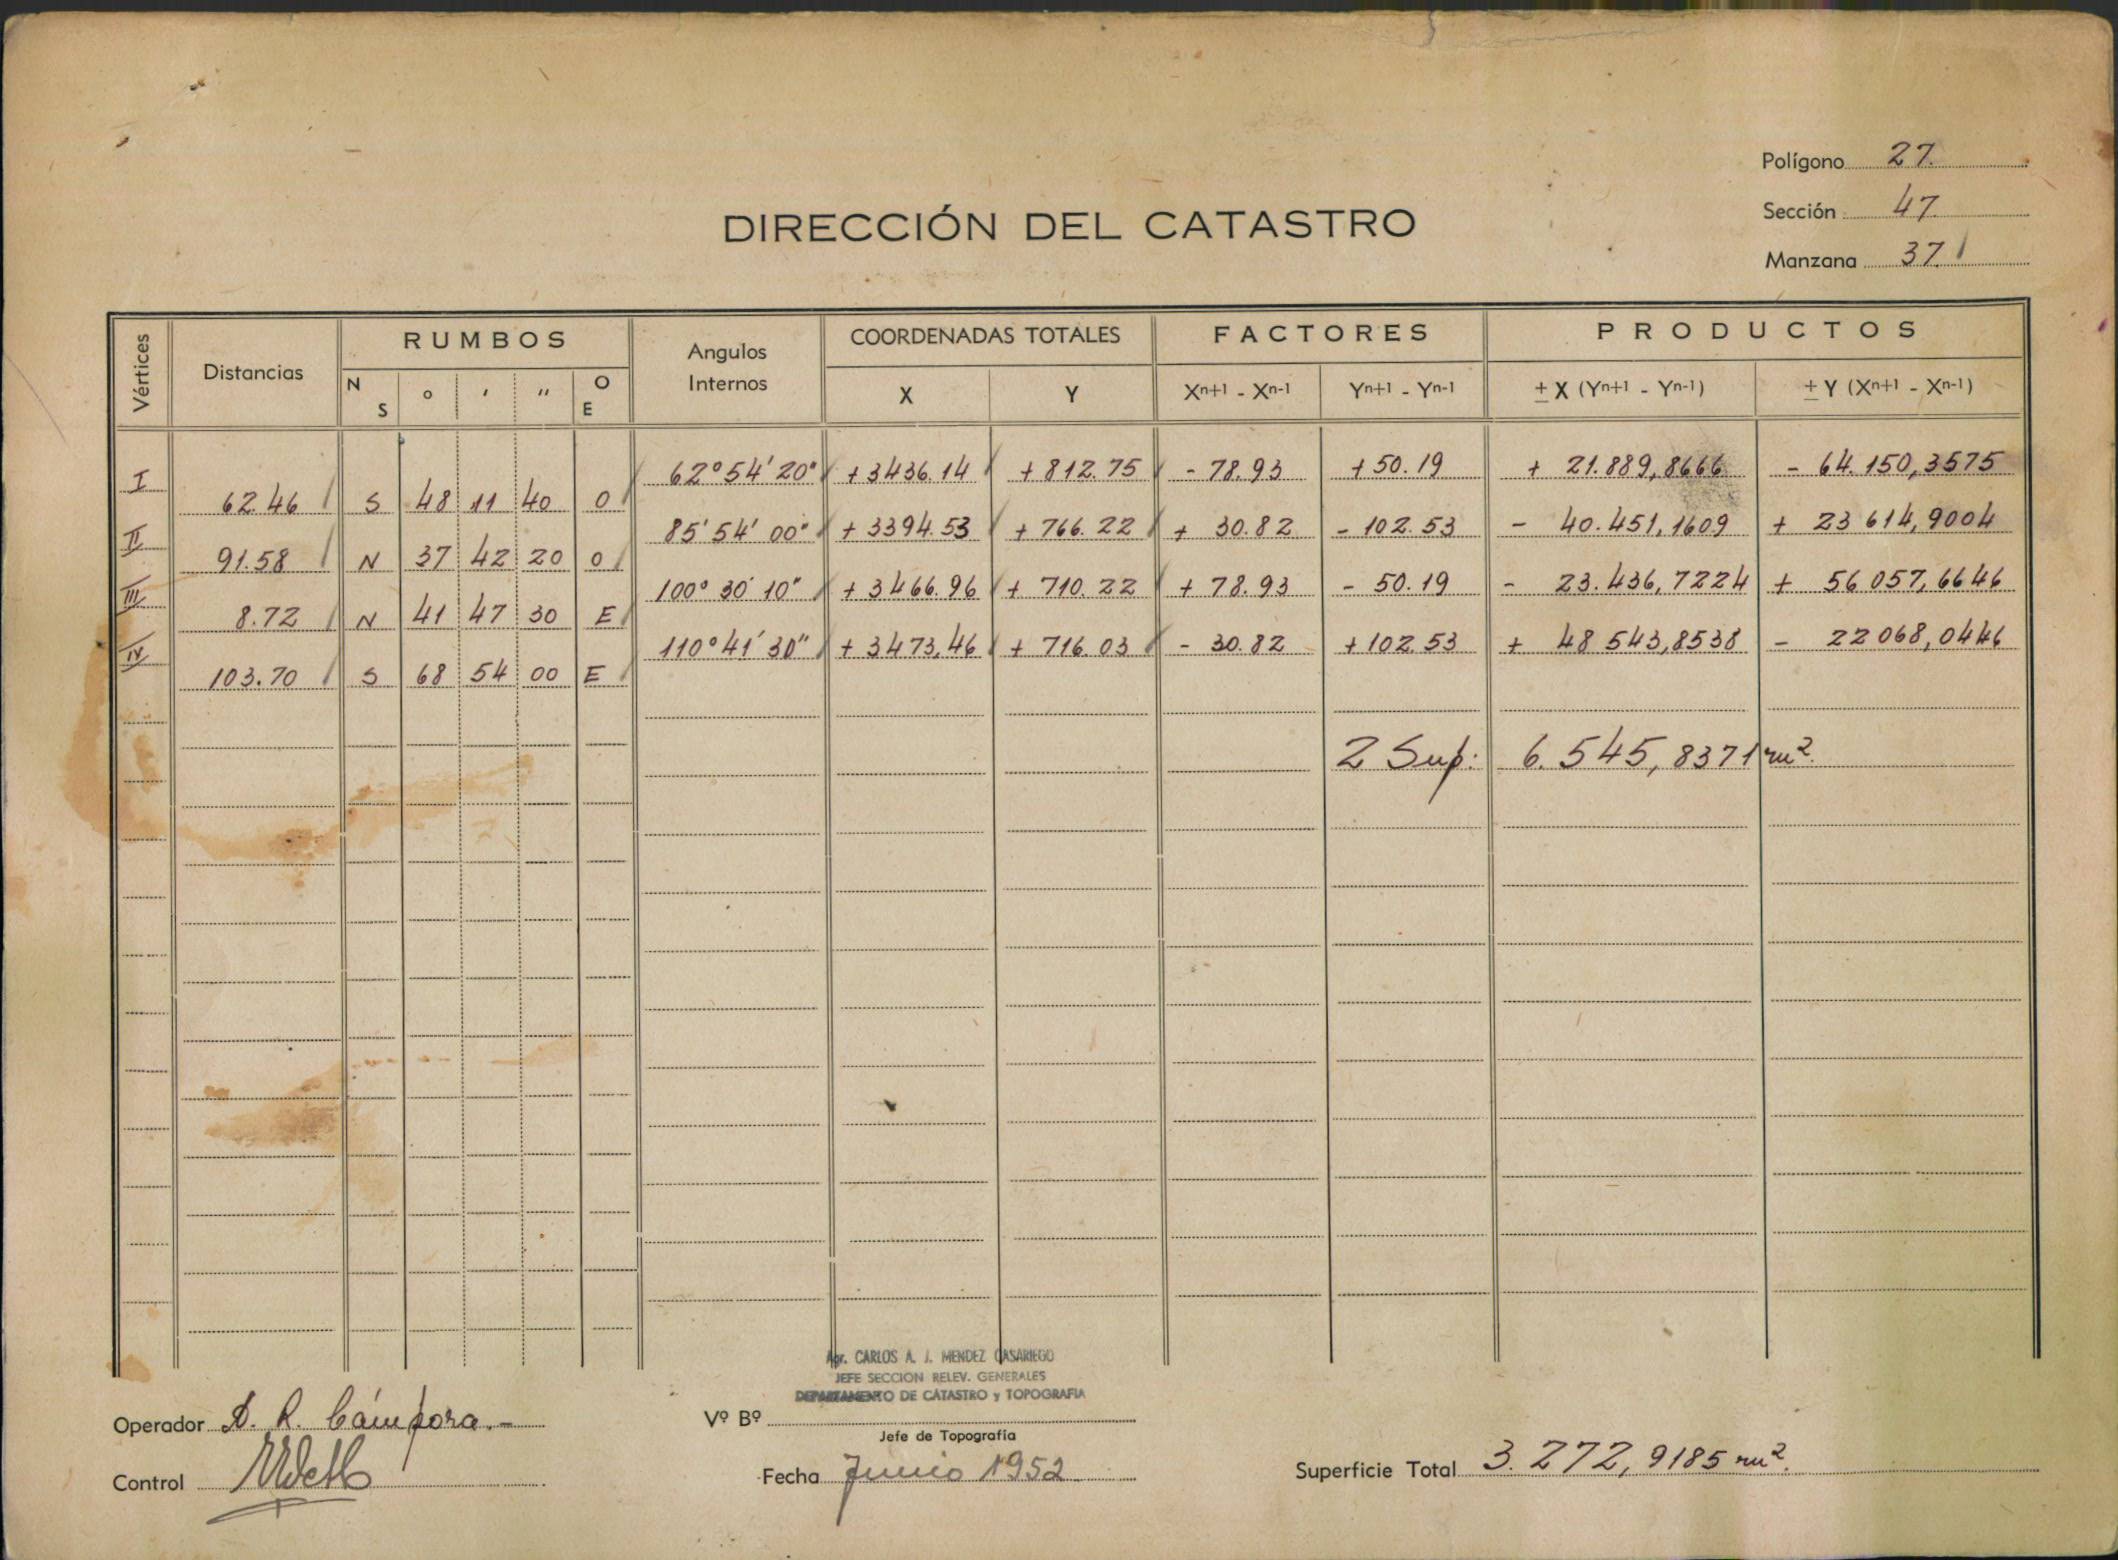 Polígono 27.
Sección 47
Manzana 37.
DIRECCIÓN DEL CATASTRO
Vértices Distancias RUMBOS Angulos Internos COORDENADAS TOTALES FACTORES PRODUCTOS
N S ° ' " O E X Y Xn+1 - Xn-1 Yn+1 - Yn-1 ± X (Yn+1 - Yn-1) ± Y (Xn+1 - Xn-1)
I 62°54'20" +3436.14 +812.75 -78.93 +50.19 + 21.889,8666 - 64.150,3575
62.46 S 48 11 40 O
II 85°54'00" +3394.53 +766.22 + 30.82 -102.53 - 40.451,1609 + 23 614,9004
91.58 N 37 42 20 O
III 100°30'10" +3466.96 + 710.22 + 78.93 - 50.19 - 23.436,7224 + 56 057,6646
8.72 N 41 47 30 E
IV 110°41'30" +3473,46 + 716.03 - 30.82 +102.53 + 48 543,8538 - 22 068,0446
103.70 S 68 54 00 E
2 Sup: 6.545,8371 m².
Agr. CARLOS A. J. MENDEZ CASARIEGO
JEFE SECCION RELEV. GENERALES
DEPARTAMENTO DE CATASTRO y TOPOGRAFIA
Operador D. R. Cámpora.-
Vº Bº
Jefe de Topografía
Control
Fecha Junio 1952
Superficie Total 3.272,9185 m².